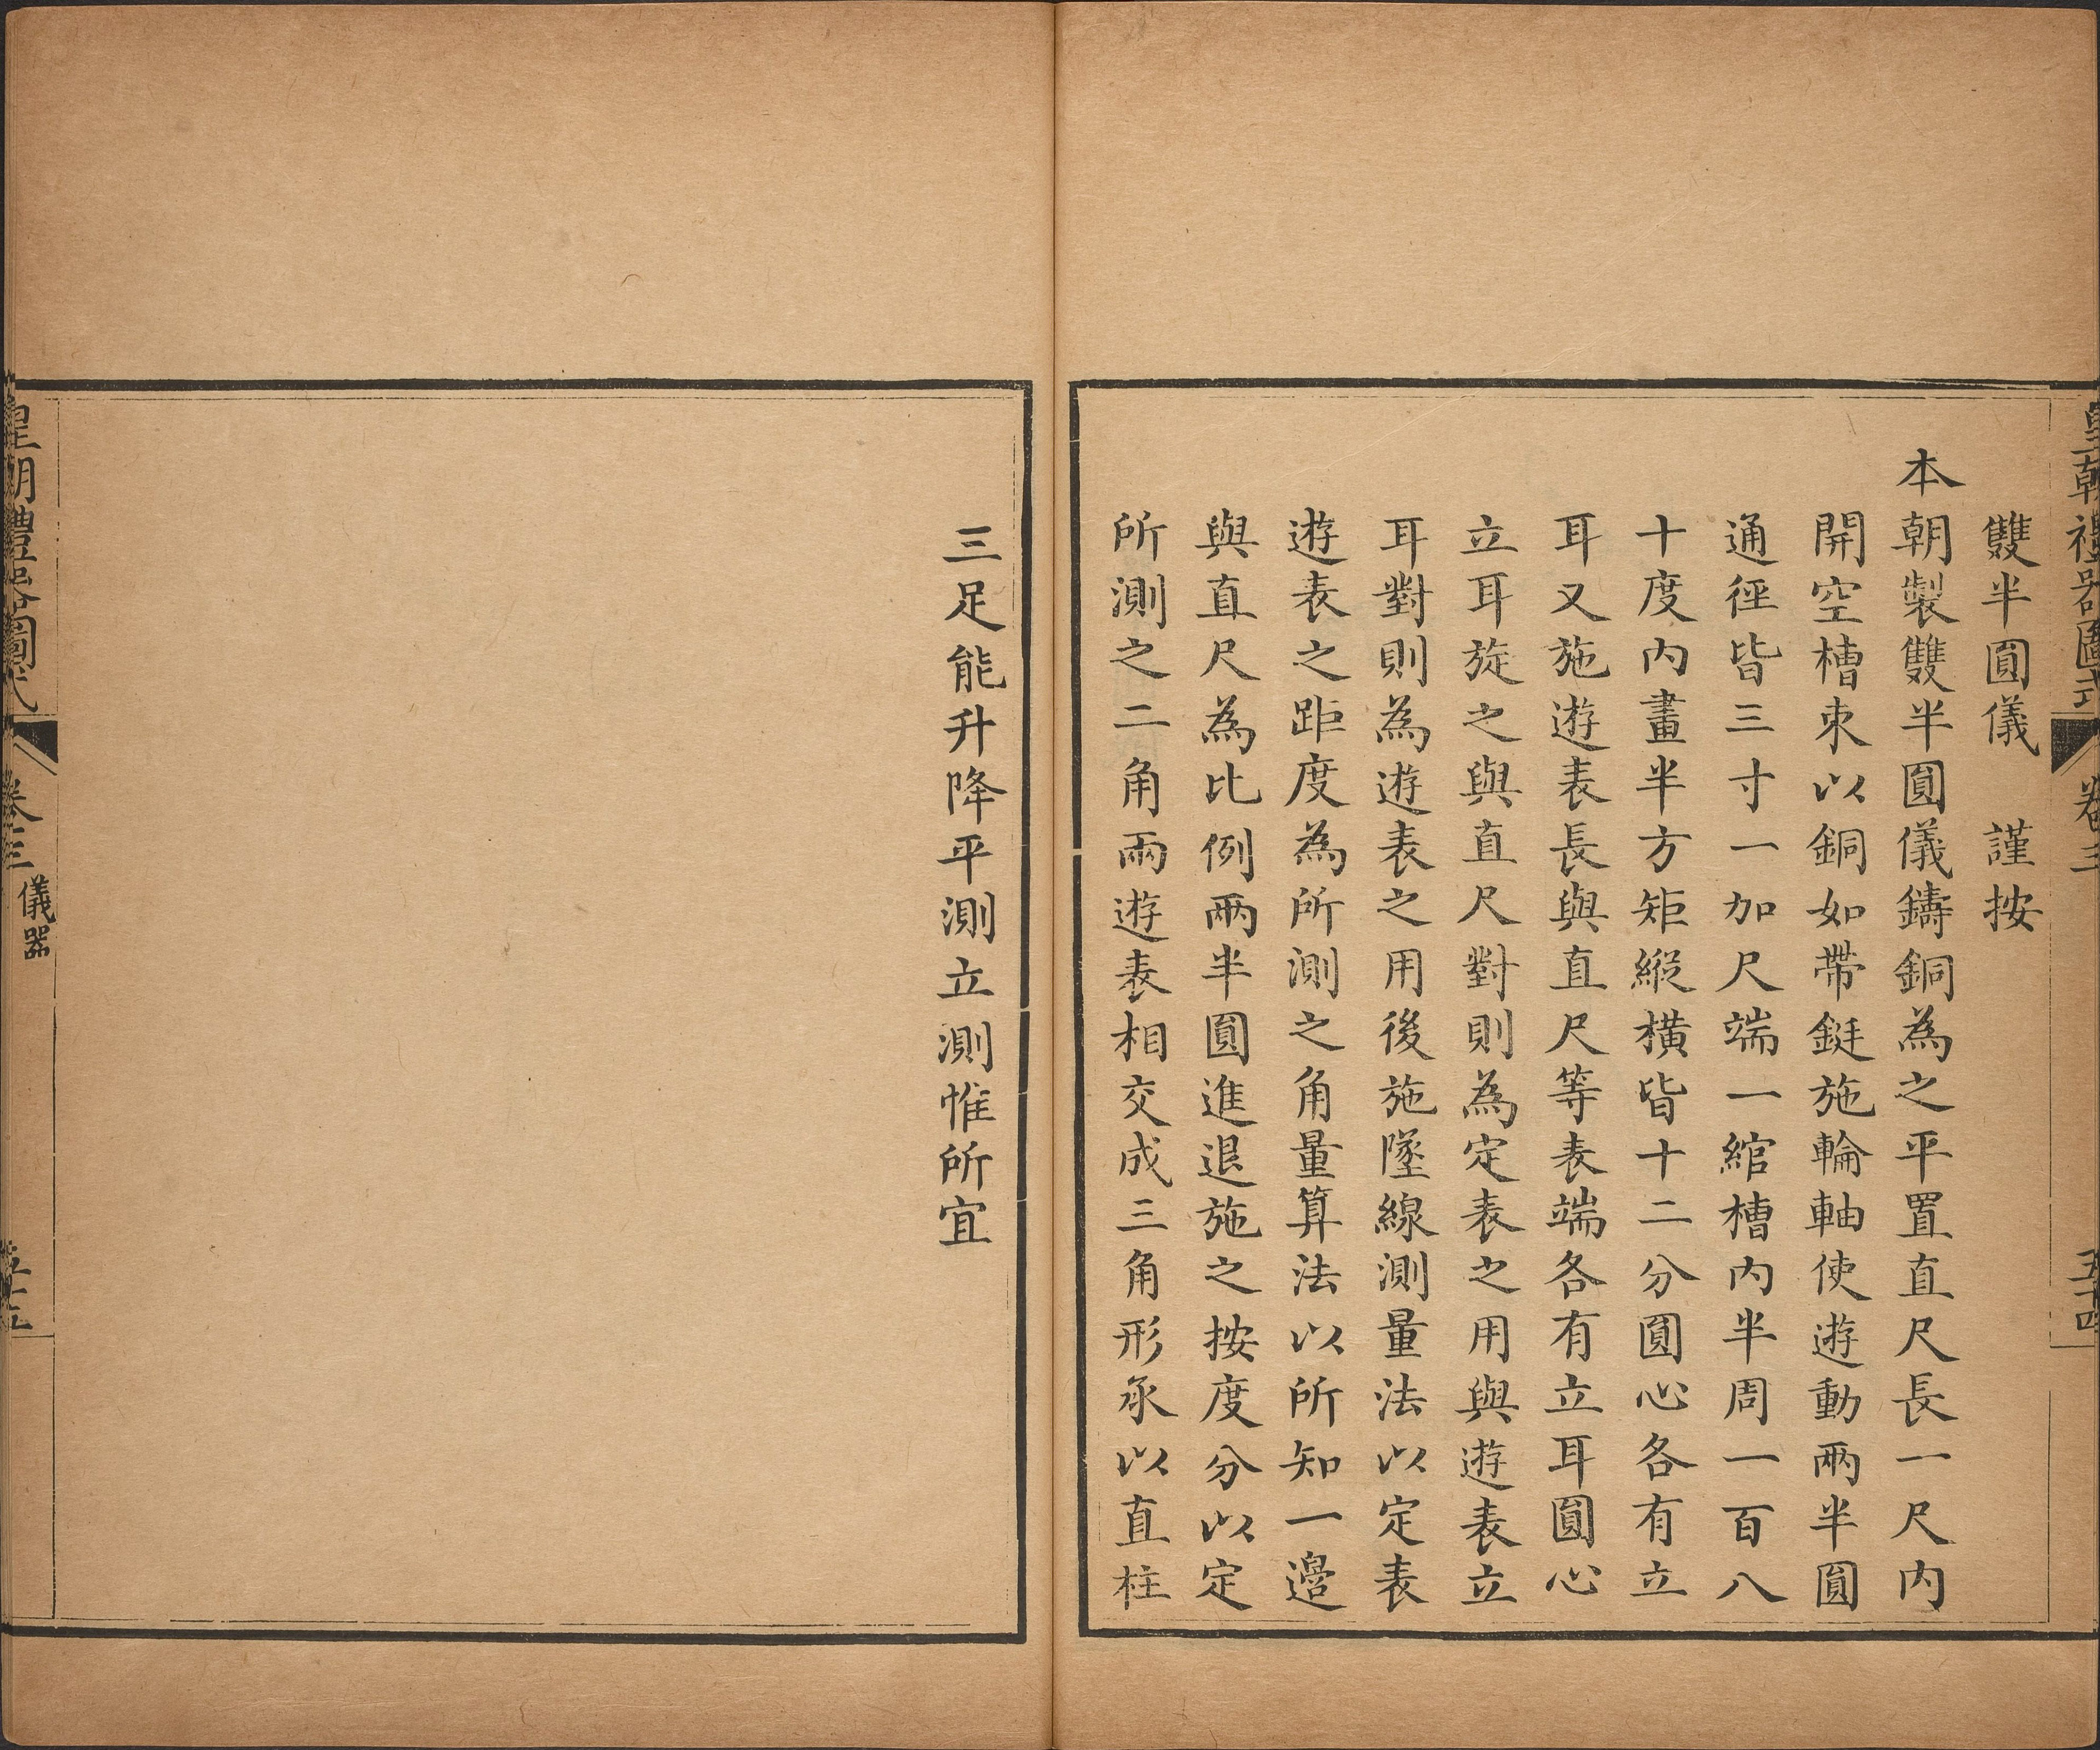 皇朝禮器圖式 卷三 五十四
雙半圓儀 謹按
本朝製雙半圓儀鑄銅為之平置直尺長一尺內
開空槽束以銅如帶鋌施輪軸使遊動兩半圓
通徑皆三寸一加尺端一綰槽內半周一百八
十度內畫半方矩縱橫皆十二分圓心各有立
耳又施遊表長與直尺等表端各有立耳圓心
立耳旋之與直尺對則為定表之用與遊表立
耳對則為遊表之用後施墜線測量法以定表
遊表之距度為所測之角量算法以所知一邊
與直尺為比例兩半圓進退施之按度分以定
所測之二角兩遊表相交成三角形承以直柱
三足能升降平測立測惟所宜
皇朝禮器圖式 卷三 儀器 五十五